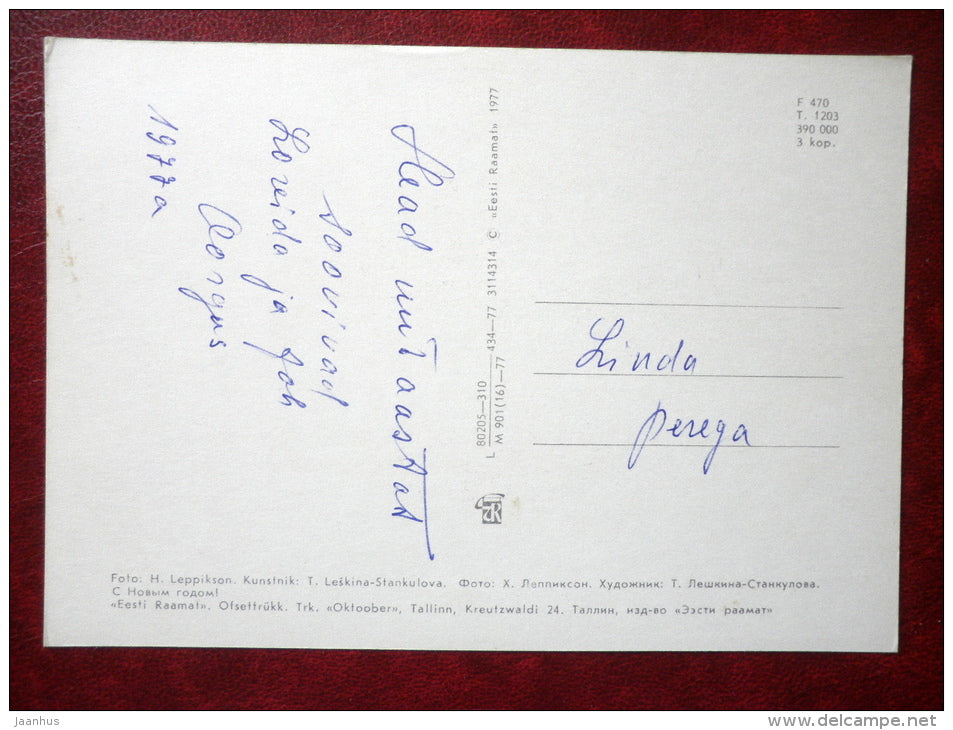 Head uut aastat
soovivad
Loreida ja Joh
Aorgus
1977a
L 80205—310 434—77 3114314 © «Eesti Raamat» 1977
M 901(16)—77
F 470
T. 1203
390 000
3 kop.
Linda
perega
Foto: H. Leppikson. Kunstnik: T. Leškina-Stankulova. Фото: Х. Леппиксон. Художник: Т. Лешкина-Станкулова.
С Новым годом!
«Eesti Raamat». Ofsettrükk. Trk. «Oktoober», Tallinn, Kreutzwaldi 24. Таллин, изд-во «Ээсти раамат»
jaanhus
www.delcampe.net